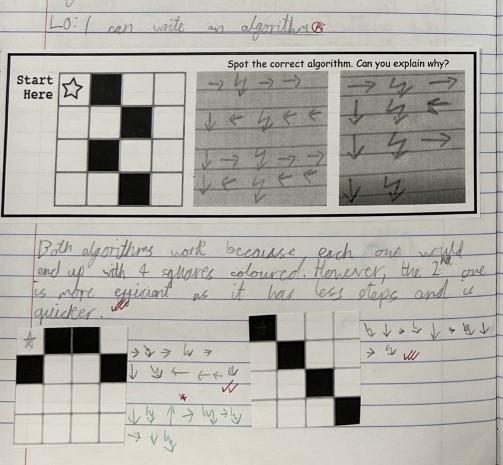 LO: I can write an algorithm
Spot the correct algorithm. Can you explain why?
Start
Here
→ ↯ → →
↓ ← ↯ ← ←
↓ → ↯ → →
↓ ← ↯ ← ←
→ ↯ →
↓ ↯ ←
↓ ↯ →
↓ ↯
Both algorithms work because each one would
end up with 4 squares coloured. However, the 2nd one
is more efficient as it has less steps and is
quicker.